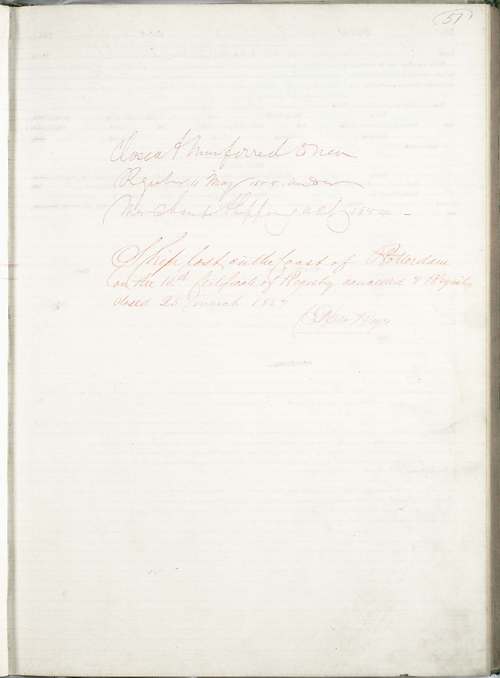 51
Closed & transferred to new
Register 11 May under
Mer Shipping Act of 1854
Ship lost on the Coast of
on the 14th Certificate of Registry cancelled & Registry
closed 25 March